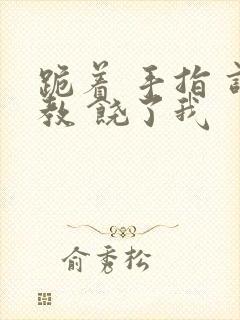 跪着 手指 
教 饶了我
俞秀松